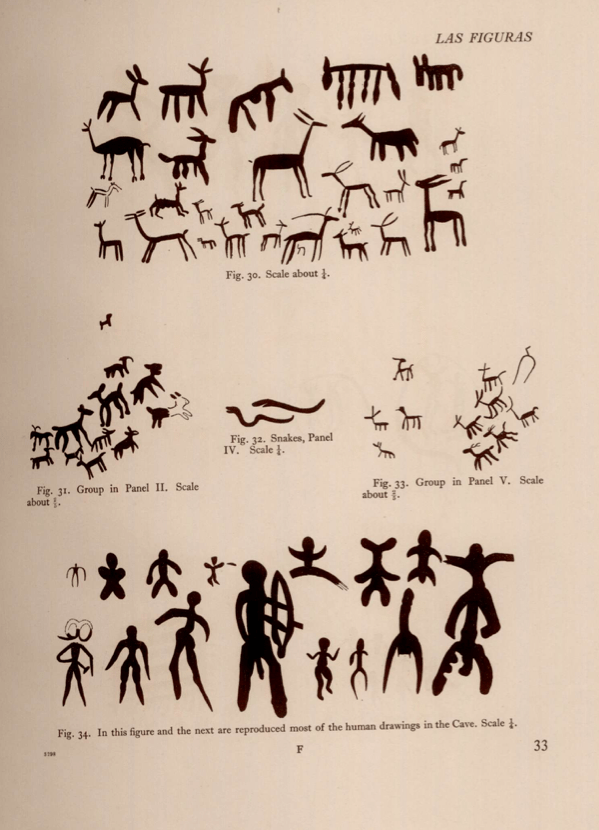 LAS FIGURAS
Fig. 30. Scale about ¼.
Fig. 32. Snakes, Panel
IV. Scale ¼.
Fig. 31. Group in Panel II. Scale
about
Fig. 33. Group in Panel V. Scale
about
Fig. 34. In this figure and the next are reproduced most of the human drawings in the Cave. Scale ¼.
F
33